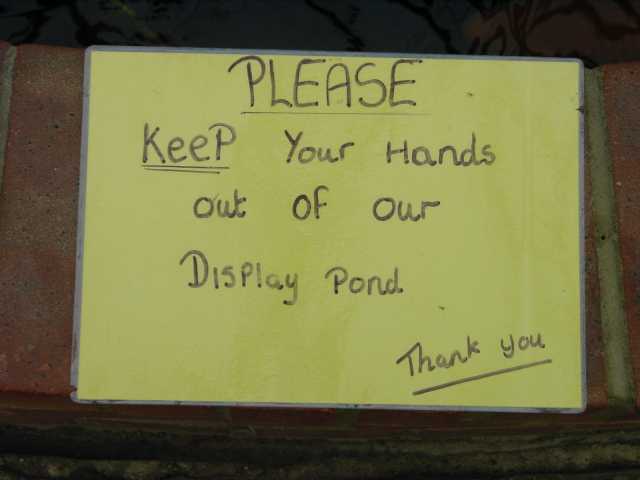 PLEASE
KeeP Your Hands
out OF our
Display Pond
Thank you